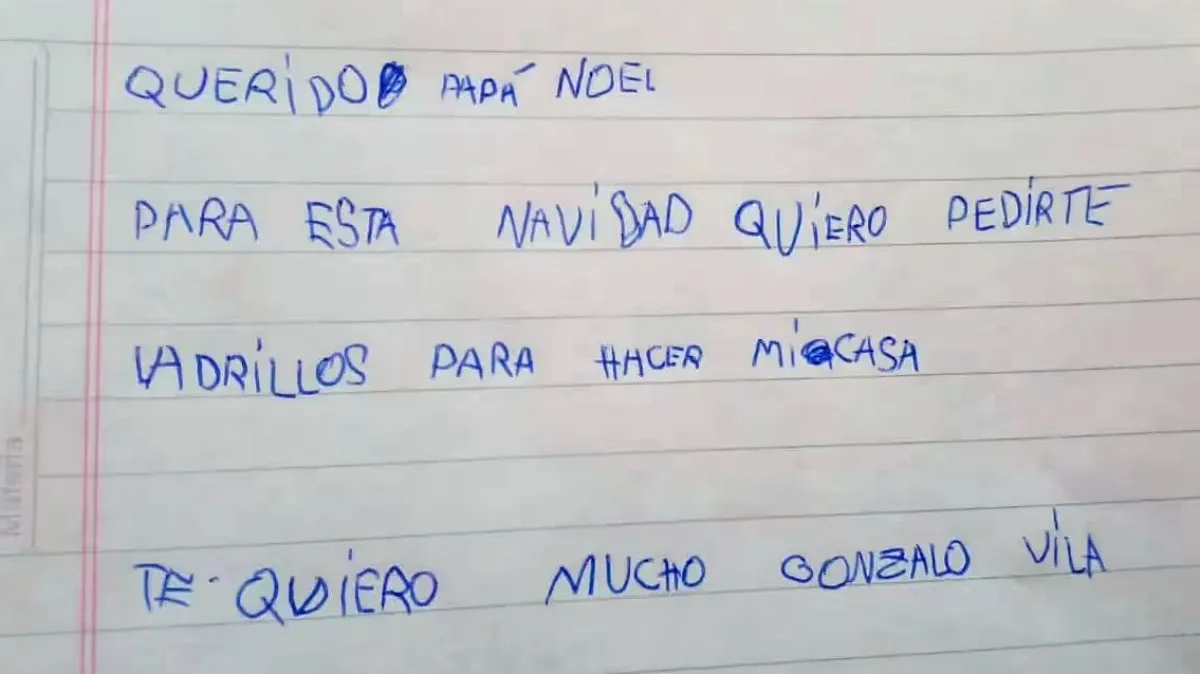 QUERIDO PAPÁ NOEL
PARA ESTA NAVIDAD QUIERO PEDIRTE
LADRILLOS PARA HACER MI CASA
TE QUIERO MUCHO GONZALO VILA
Materia